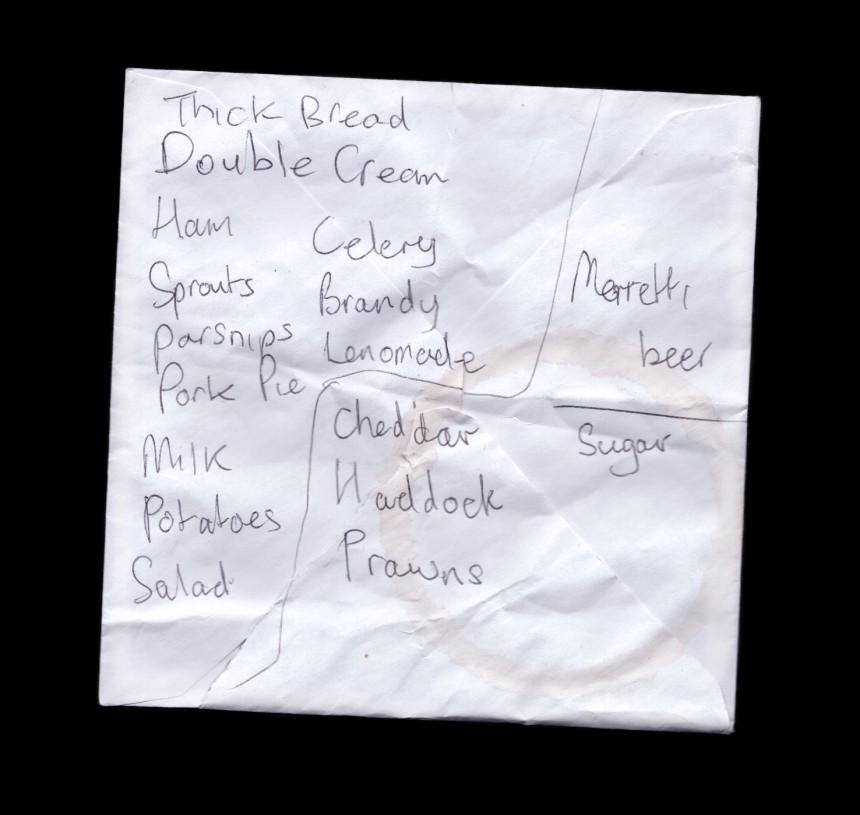 Thick Bread
Double Cream
Ham
Sprouts
Parsnips
Pork Pie
Milk
Potatoes
Salad
Celery
Brandy
Lenomade
Cheddar
Haddock
Prawns
Morretti
beer
Sugar